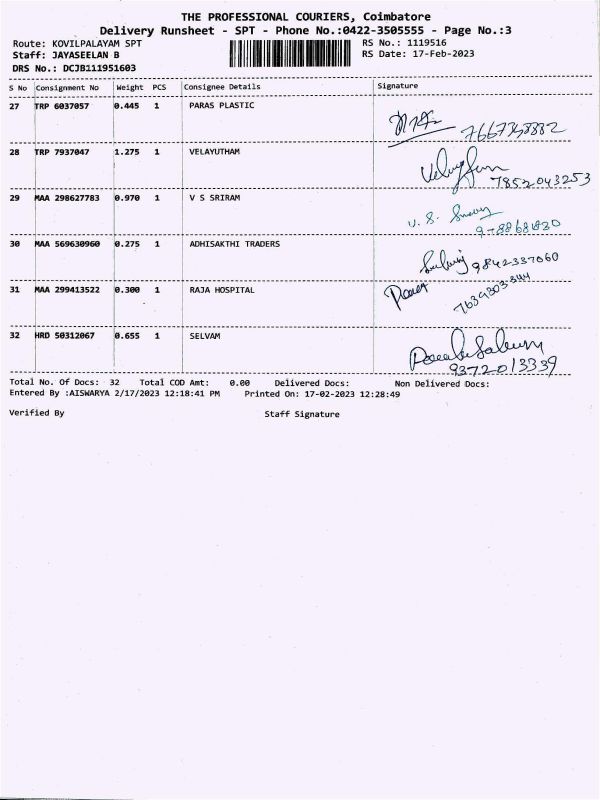 THE PROFESSIONAL COURIERS, Coimbatore
Delivery Runsheet - SPT - Phone No.:0422-3505555 - Page No.:3
Route: KOVILPALAYAM SPT RS No.: 1119516
Staff: JAYASEELAN B RS Date: 17-Feb-2023
DRS No.: DCJB111951603
S No Consignment No Weight PCS Consignee Details Signature
27 TRP 6037057 0.445 1 PARAS PLASTIC
28 TRP 7937047 1.275 1 VELAYUTHAM
7852043253
29 MAA 298627783 0.970 1 V S SRIRAM
V. S.
30 MAA 569630960 0.275 1 ADHISAKTHI TRADERS
9842337060
31 MAA 299413522 0.300 1 RAJA HOSPITAL
7639303344
32 HRD 50312067 0.655 1 SELVAM
9372013339
Total No. Of Docs: 32 Total COD Amt: 0.00 Delivered Docs: Non Delivered Docs:
Entered By :AISWARYA 2/17/2023 12:18:41 PM Printed On: 17-02-2023 12:28:49
Verified By Staff Signature